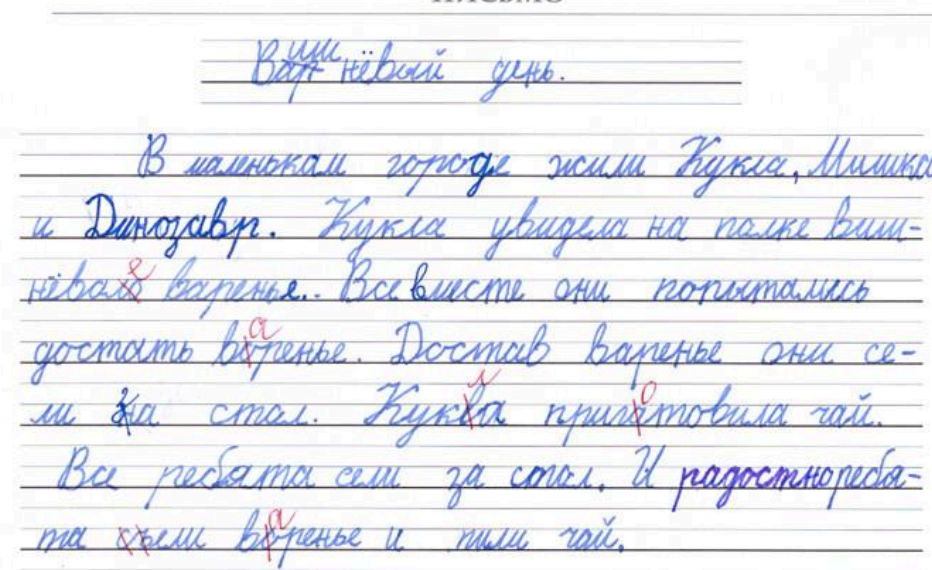 ПИСЬМО
Вишнёвый день.
В маленькам городе жили Кукла, Мишка
и Динозавр. Кукла увидела на палке виш-
нёвое варенье. Все вместе они попытались
достать варенье. Достав варенье они се-
ли за стал. Кукла приготовила чай.
Все ребята сели за стал. И радостно ребя-
та ели варенье и пили чай.